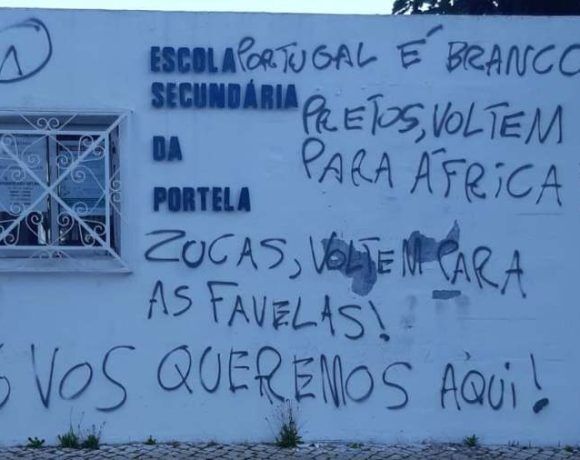 ESCOLA PORTUGAL É BRANCO
SECUNDÁRIA
PRETOS, VOLTEM
DA
PARA ÁFRICA
PORTELA
ZUCAS, VOLTEM PARA
AS FAVELAS!
VOS QUEREMOS AQUI!